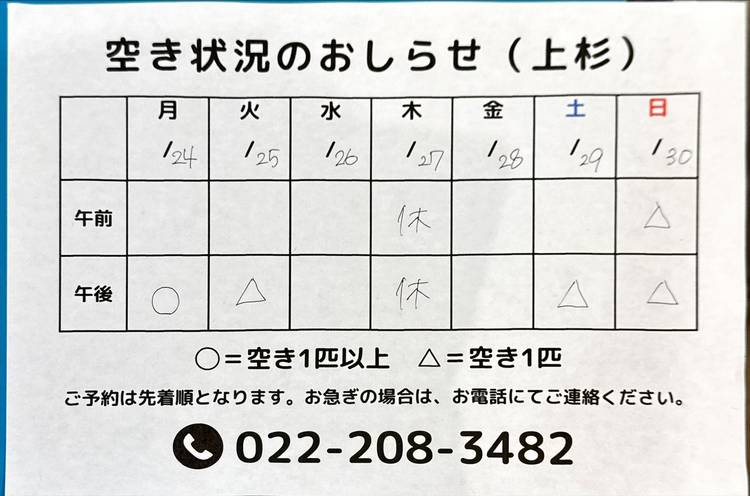 空き状況のおしらせ（上杉）
月 火 水 木 金 土 日
/24 /25 /26 /27 /28 /29 /30
午前 休 △
午後 ○ △ 休 △ △
○＝空き1匹以上 △＝空き1匹
ご予約は先着順となります。お急ぎの場合は、お電話にてご連絡ください。
022-208-3482